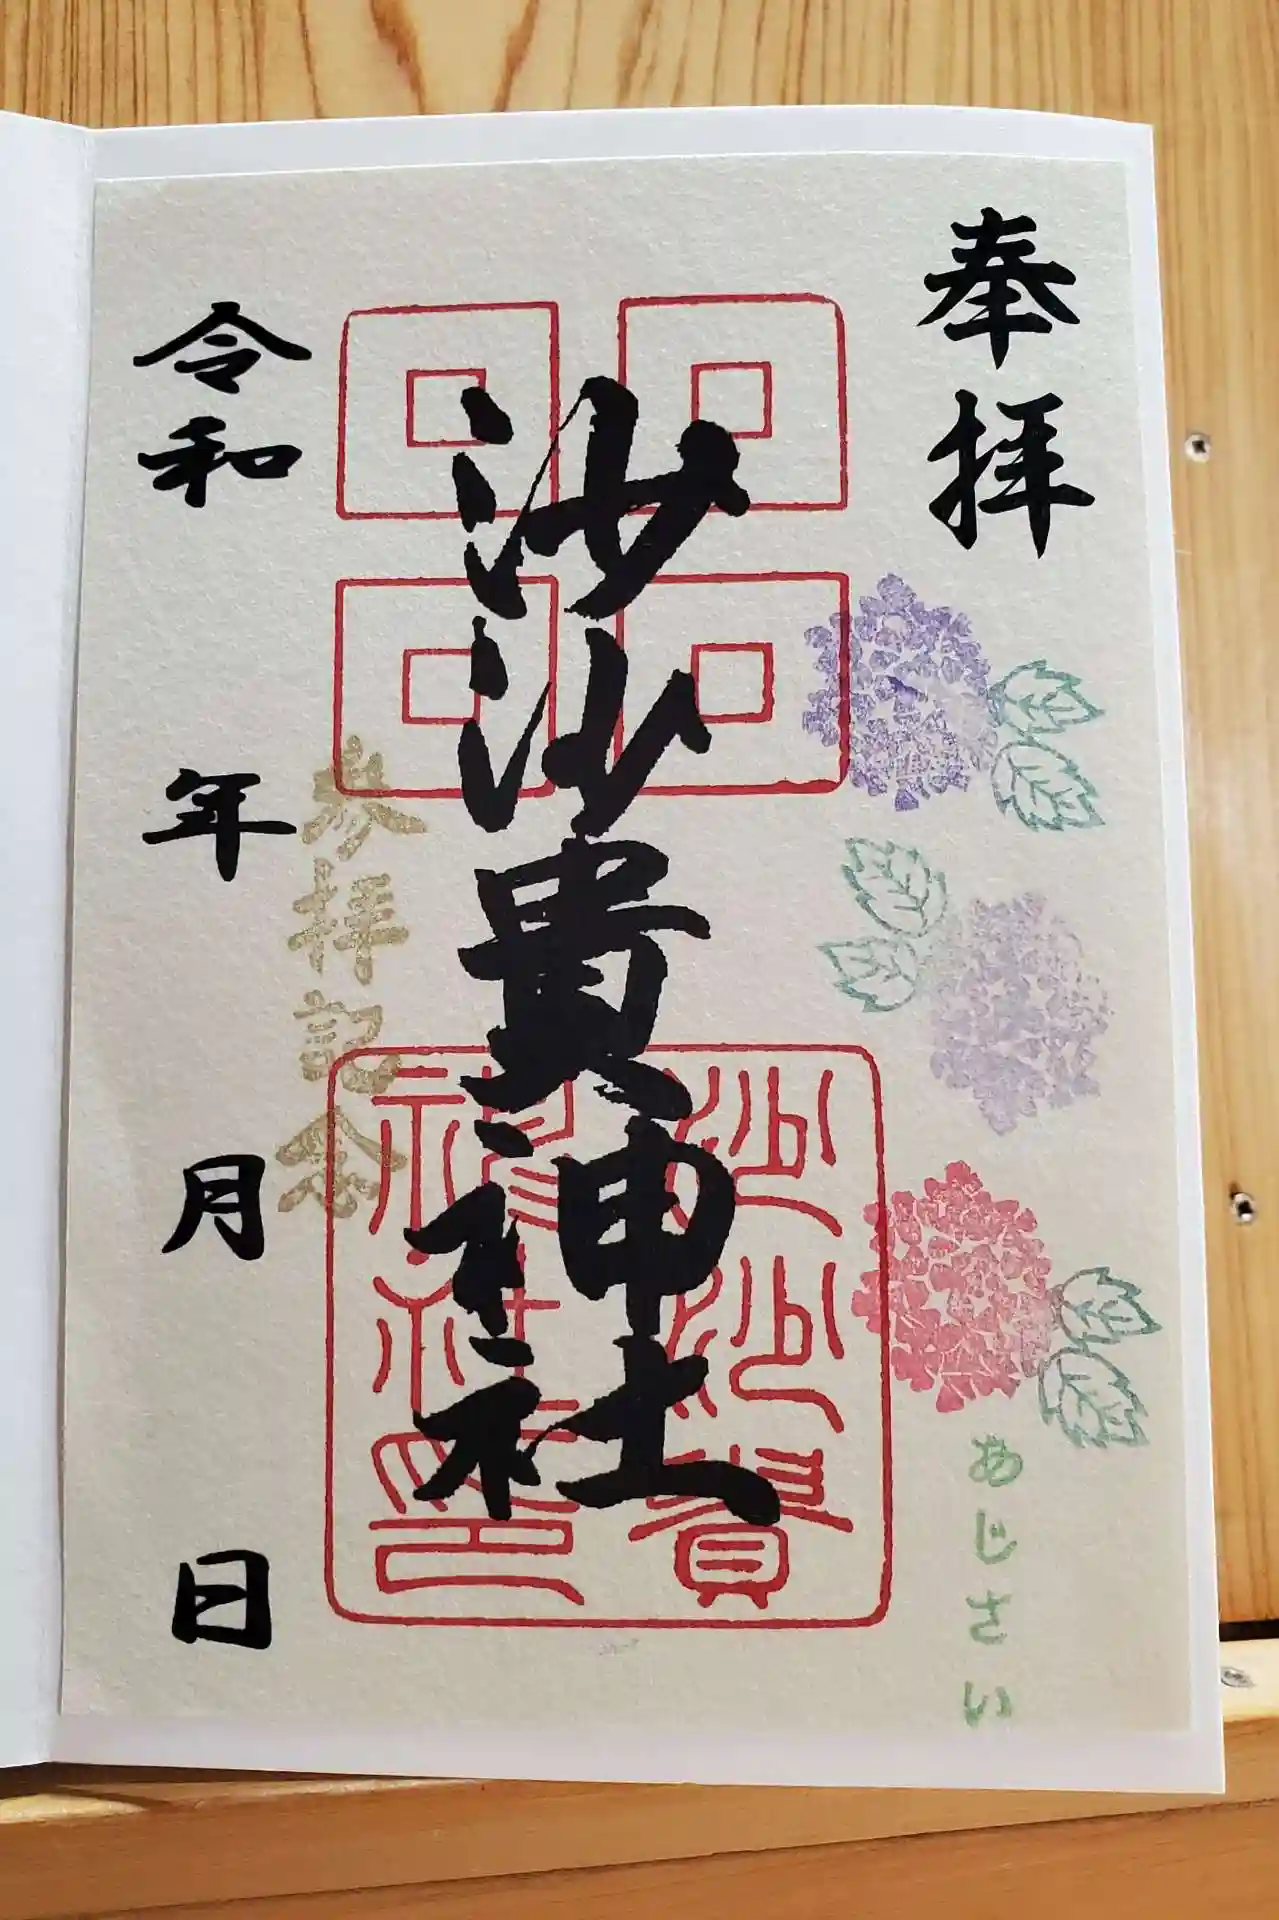 奉拝
あじさい
沙沙貴神社
沙沙貴
神社印
参拝記念
令和 年 月 日